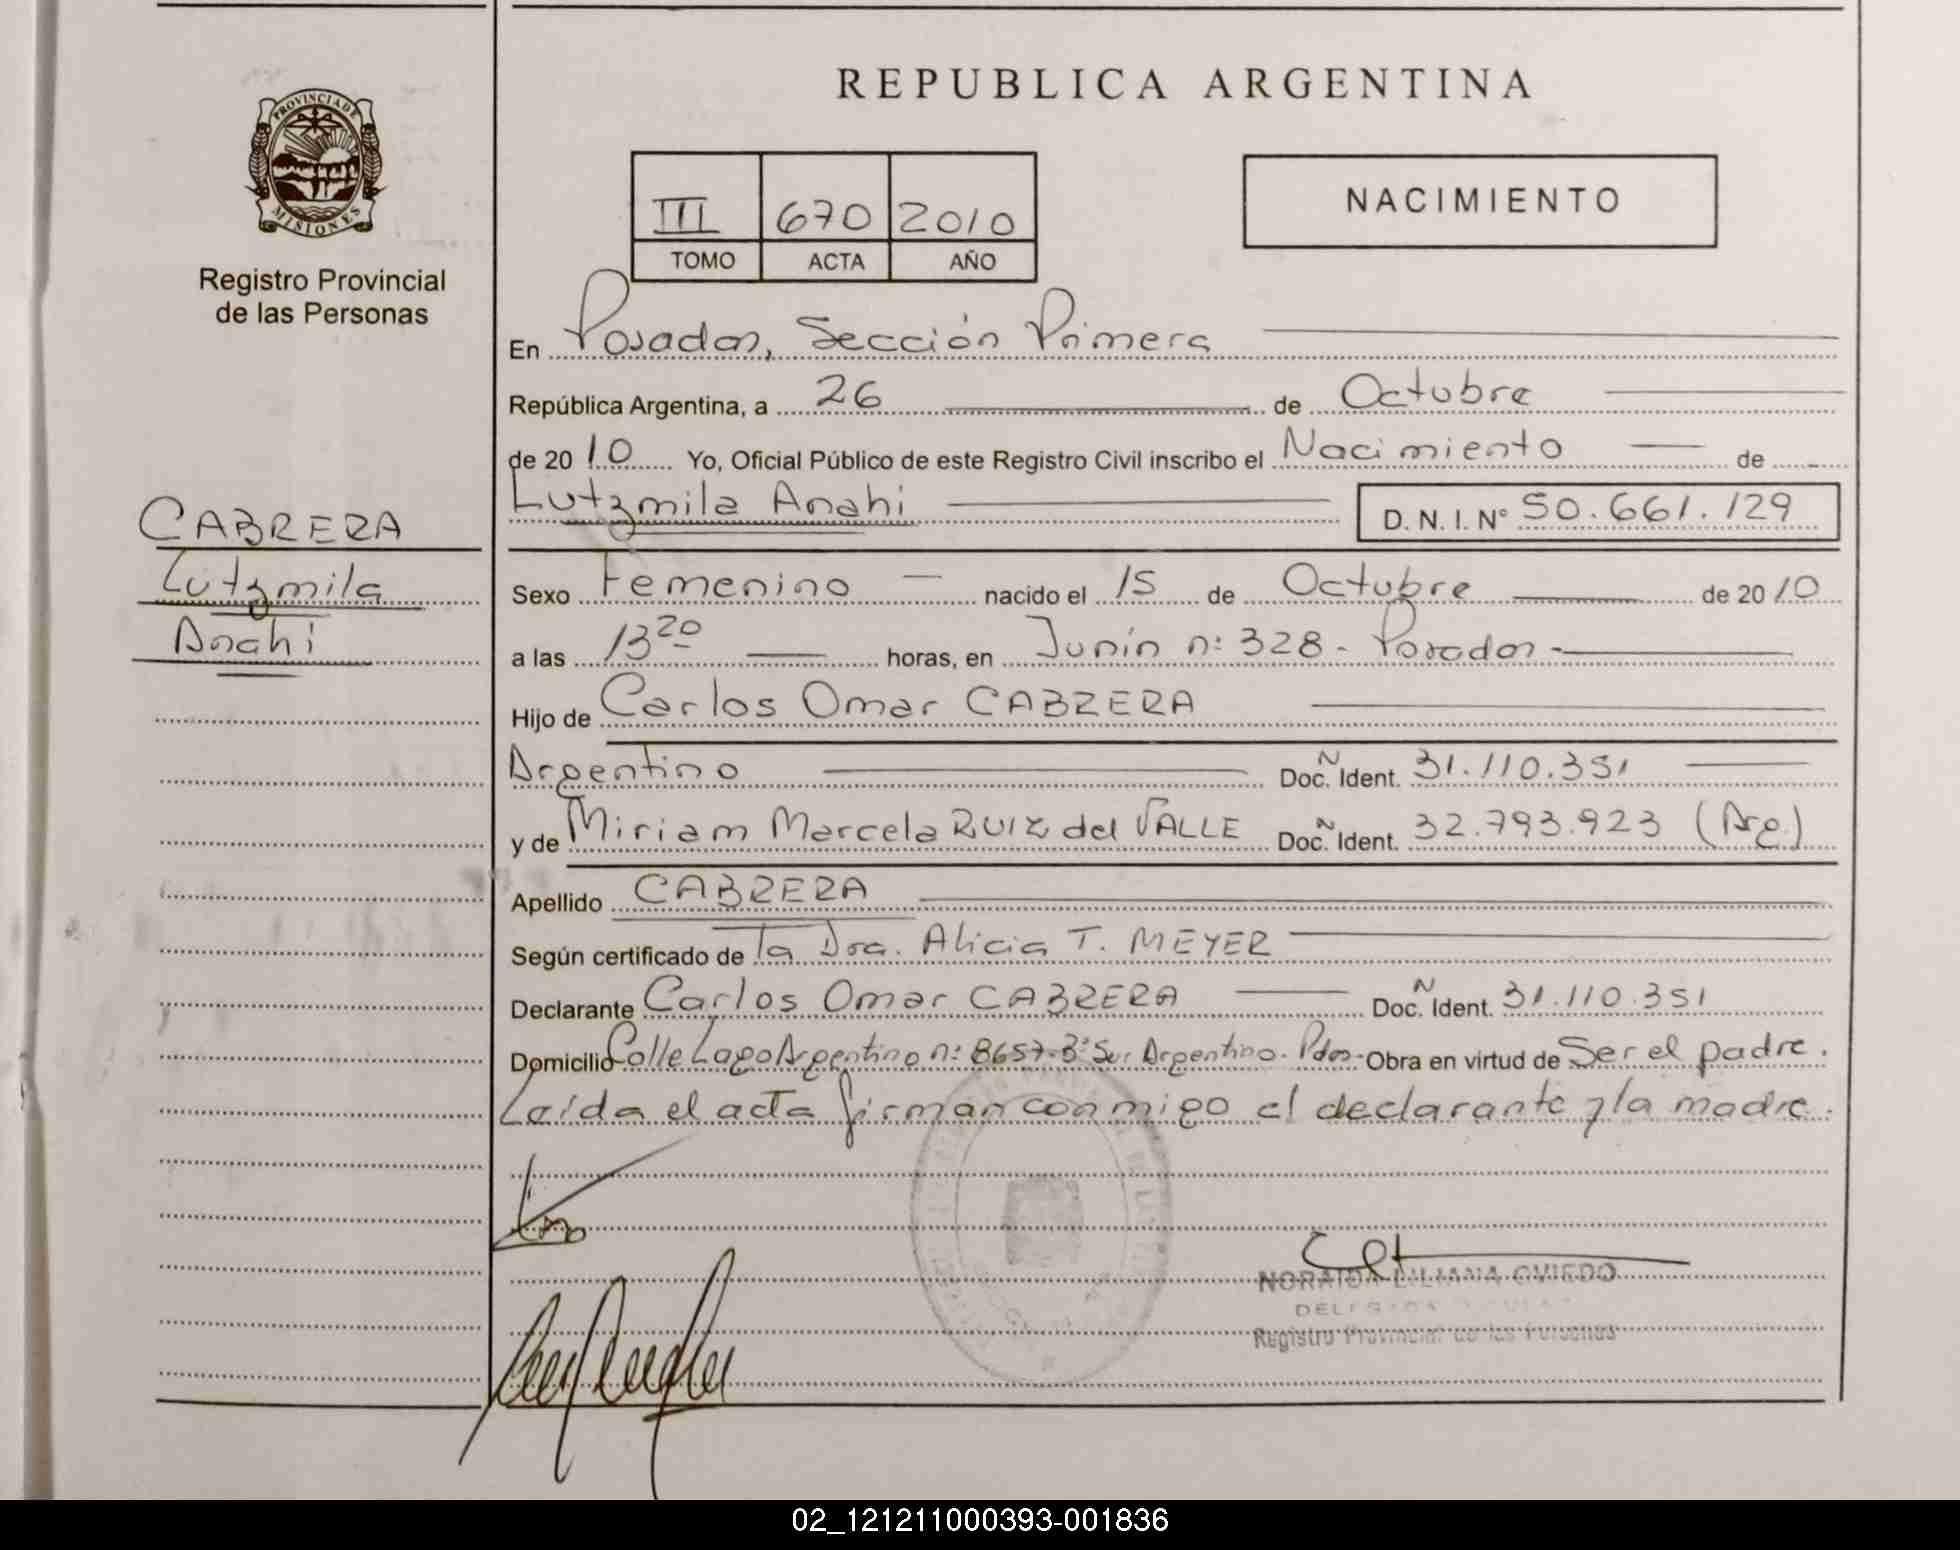 REPUBLICA ARGENTINA
PROVINCIA DE MISIONES
Registro Provincial
de las Personas
III 670 2010
TOMO ACTA AÑO
NACIMIENTO
En Posadas, Sección Primera
República Argentina, a 26 de Octubre
de 2010 Yo, Oficial Público de este Registro Civil inscribo el Nacimiento de
Lutzmila Anahi D. N. I. Nº 50.661.129
CABRERA
Lutzmila
Anahi
Sexo Femenino nacido el 15 de Octubre de 2010
a las 13 20 horas, en Junín n: 328 - Posadas -
Hijo de Carlos Omar CABRERA
Argentino Doc. Ident. 31.110.351
y de Miriam Marcela RUIZ del VALLE Doc. Ident. 32.793.923 (Arg.)
Apellido CABRERA
Según certificado de la Dra. Alicia T. MEYER
Declarante Carlos Omar CABRERA Doc. Ident. 31.110.351
Domicilio Calle Lago Argentino n: 8657-B: Sur Argentino. Pdas- Obra en virtud de Ser el padre.
Leída el acta firman conmigo el declarante y la madre.
NORAIDA LILIANA OVIEDO
Registro Provincial de las Personas
02_121211000393-001836